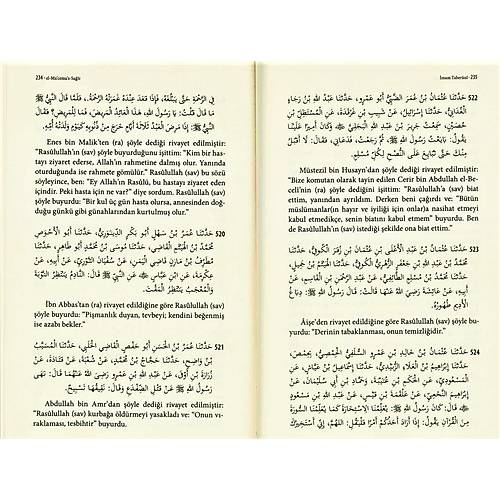 234 · el-Mu'cemu's-Sağîr
فِي الرَّحْمَةِ حَتَّى يَبْلُغَهُ، فَإِذَا قَعَدَ عِنْدَهُ غَمَرَتْهُ الرَّحْمَةُ.، فَلَمَّا قَالَ النَّبِيُّ ﷺ
مَا قَالَ قُلْتُ: يَا رَسُولَ اللَّهِ هَذَا لِلَّذِي يَعُودُ الْمَرِيضَ، فَمَا لِلْمَرِيضِ؟ فَقَالَ
النَّبِيُّ ﷺ: إِذَا مَرِضَ الْعَبْدُ ثَلَاثَةَ أَيَّامٍ خَرَجَ مِنْ ذُنُوبِهِ كَيَوْمِ وَلَدَتْهُ أُمُّهُ.
Enes bin Malik'ten (ra) şöyle dediği rivayet edilmiştir:
"Rasûlullah'ın (sav) şöyle buyurduğunu işittim: "Kim bir has-
tayı ziyaret ederse, Allah'ın rahmetine dalmış olur. Yanında
oturduğunda ise rahmete gömülür." Rasûlullah (sav) bu sözü
söyleyince, ben: "Ey Allah'ın Rasûlü, bu hastayı ziyaret eden
içindir. Peki hastaya ne vardır?" dedim. Rasûlullah (sav) şöyle
buyurdu: "Bir kul üç gün hasta olursa, annesinden doğ-
duğu günkü gibi günahlarından kurtulmuş olur."
520 حَدَّثَنَا عُمَرُ بْنُ سَهْلٍ أَبُو بَكْرٍ الدِّينَوَرِيُّ، حَدَّثَنَا أَبُو الْأَحْوَصِ
مُحَمَّدُ بْنُ الْهَيْثَمِ الْقَاضِي، حَدَّثَنَا مُوسَى بْنُ مُحَمَّدٍ أَبُو طَاهِرٍ، حَدَّثَنَا
مُطَرِّفُ بْنُ مَازِنٍ قَاضِي الْيَمَنِ، عَنْ سُفْيَانَ الثَّوْرِيِّ، عَنْ أَبِيهِ، عَنْ
عِكْرِمَةَ، عَنِ ابْنِ عَبَّاسٍ عَنِ النَّبِيِّ ﷺ قَالَ: النَّادِمُ يَنْتَظِرُ التَّوْبَةَ
وَالْمُعْجَبُ يَنْتَظِرُ الْمَقْتَ.
İbn Abbas'tan (ra) rivayet edildiğine göre Rasûlullah (sav)
şöyle buyurdu: "Pişmanlık duyan, tevbeyi; kendini beğenmiş
ise azabı bekler."
521 حَدَّثَنَا عُمَرُ بْنُ الْحَسَنِ أَبُو حَفْصٍ الْقَاضِي الْحَلَبِيُّ، حَدَّثَنَا الْمُسَيَّبُ
بْنُ وَاضِحٍ، حَدَّثَنَا حَجَّاجُ بْنُ مُحَمَّدٍ، عَنْ شُعْبَةَ، عَنْ قَتَادَةَ، عَنْ
زُرَارَةَ بْنِ أَوْفَى، عَنْ عَبْدِ اللَّهِ بْنِ عَمْرٍو رَضِيَ اللَّهُ عَنْهُمَا قَالَ: نَهَى
رَسُولُ اللَّهِ ﷺ عَنْ قَتْلِ الضِّفْدَعِ وَقَالَ: نَقِيقُهَا تَسْبِيحٌ.
Abdullah bin Amr'dan şöyle dediği rivayet edilmiştir:
"Rasûlullah (sav) kurbağa öldürmeyi yasakladı ve: "Onun vı-
raklaması, tesbihtir" buyurdu.
İmam Taberânî · 235
522 حَدَّثَنَا عُثْمَانُ بْنُ عُمَرَ الضَّبِّيُّ أَبُو عَمْرٍو، حَدَّثَنَا عَبْدُ اللَّهِ بْنُ رَجَاءٍ
الْغُدَانِيُّ، حَدَّثَنَا إِسْرَائِيلُ، عَنْ شَبِيبِ بْنِ غَرْقَدَةَ، عَنِ الْمُسْتَظِلِّ بْنِ
حُصَيْنٍ، سَمِعْتُ جَرِيرَ بْنَ عَبْدِ اللَّهِ الْبَجَلِيَّ وَكَانَ أَمِيرًا عَلَيْنَا
يَقُولُ: بَايَعْتُ رَسُولَ اللَّهِ ﷺ، ثُمَّ رَجَعْتُ، فَدَعَانِي، فَقَالَ: لَا أَقْبَلُ
مِنْكَ حَتَّى تُبَايِعَ عَلَى النُّصْحِ لِكُلِّ مُسْلِمٍ.
Müstezil bin Husayn'dan şöyle dediği rivayet edilmiştir:
"Bize komutan olarak tayin edilen Cerir bin Abdullah el-Be-
celî'nin (ra) şöyle dediğini işittim: "Rasûlullah'a (sav) biat
ettim, yanından ayrıldım. Derken beni çağırdı ve: "Bütün
müslümanlar(ın hayır ve iyiliği için onlar)a nasihat etmeyi
kabul etmedikçe, senin biatını kabul etmem" buyurdu. Ben
de Rasûlullah'ın (sav) istediği şekilde ona biat ettim."
523 حَدَّثَنَا عُثْمَانُ بْنُ عَبْدِ الْأَعْلَى بْنِ عُثْمَانَ بْنِ زُفَرَ الْكُوفِيُّ، حَدَّثَنَا
مُحَمَّدُ بْنُ عَبْدِ اللَّهِ بْنِ جَعْفَرٍ الزُّهَيْرِيُّ الْكُوفِيُّ، حَدَّثَنَا الْهَيْثَمُ بْنُ جَمِيلٍ،
حَدَّثَنَا مُحَمَّدُ بْنُ مُسْلِمٍ الطَّائِفِيُّ، عَنْ عَبْدِ الرَّحْمَنِ بْنِ الْقَاسِمِ، عَنْ
أَبِيهِ، عَنْ عَائِشَةَ رَضِيَ اللَّهُ عَنْهَا قَالَتْ: قَالَ رَسُولُ اللَّهِ ﷺ: دِبَاغُ
الْأَدِيمِ طُهُورُهُ.
Âişe'den rivayet edildiğine göre Rasûlullah (sav) şöyle bu-
yurdu: "Derinin tabaklanması, onun temizliğidir."
524 حَدَّثَنَا عُثْمَانُ بْنُ خَالِدِ بْنِ عَمْرٍو السُّلَفِيُّ الْحِمْصِيُّ، بِحِمْصَ،
حَدَّثَنَا إِبْرَاهِيمُ بْنُ الْعَلَاءِ الزُّبَيْدِيُّ، حَدَّثَنَا إِسْمَاعِيلُ بْنُ عَيَّاشٍ، عَنِ
الْمَسْعُودِيِّ، عَنِ الْحَكَمِ بْنِ عُتَيْبَةَ، وَحَمَّادِ بْنِ أَبِي سُلَيْمَانَ، عَنْ
إِبْرَاهِيمَ النَّخَعِيِّ، عَنْ عَلْقَمَةَ بْنِ قَيْسٍ، عَنْ عَبْدِ اللَّهِ بْنِ مَسْعُودٍ
قَالَ: كَانَ رَسُولُ اللَّهِ ﷺ يُعَلِّمُنَا الِاسْتِخَارَةَ كَمَا يُعَلِّمُنَا السُّورَةَ
مِنَ الْقُرْآنِ يَقُولُ: إِذَا أَرَادَ أَحَدُكُمْ أَمْرًا فَلْيَقُلْ: اللَّهُمَّ، إِنِّي أَسْتَخِيرُكَ